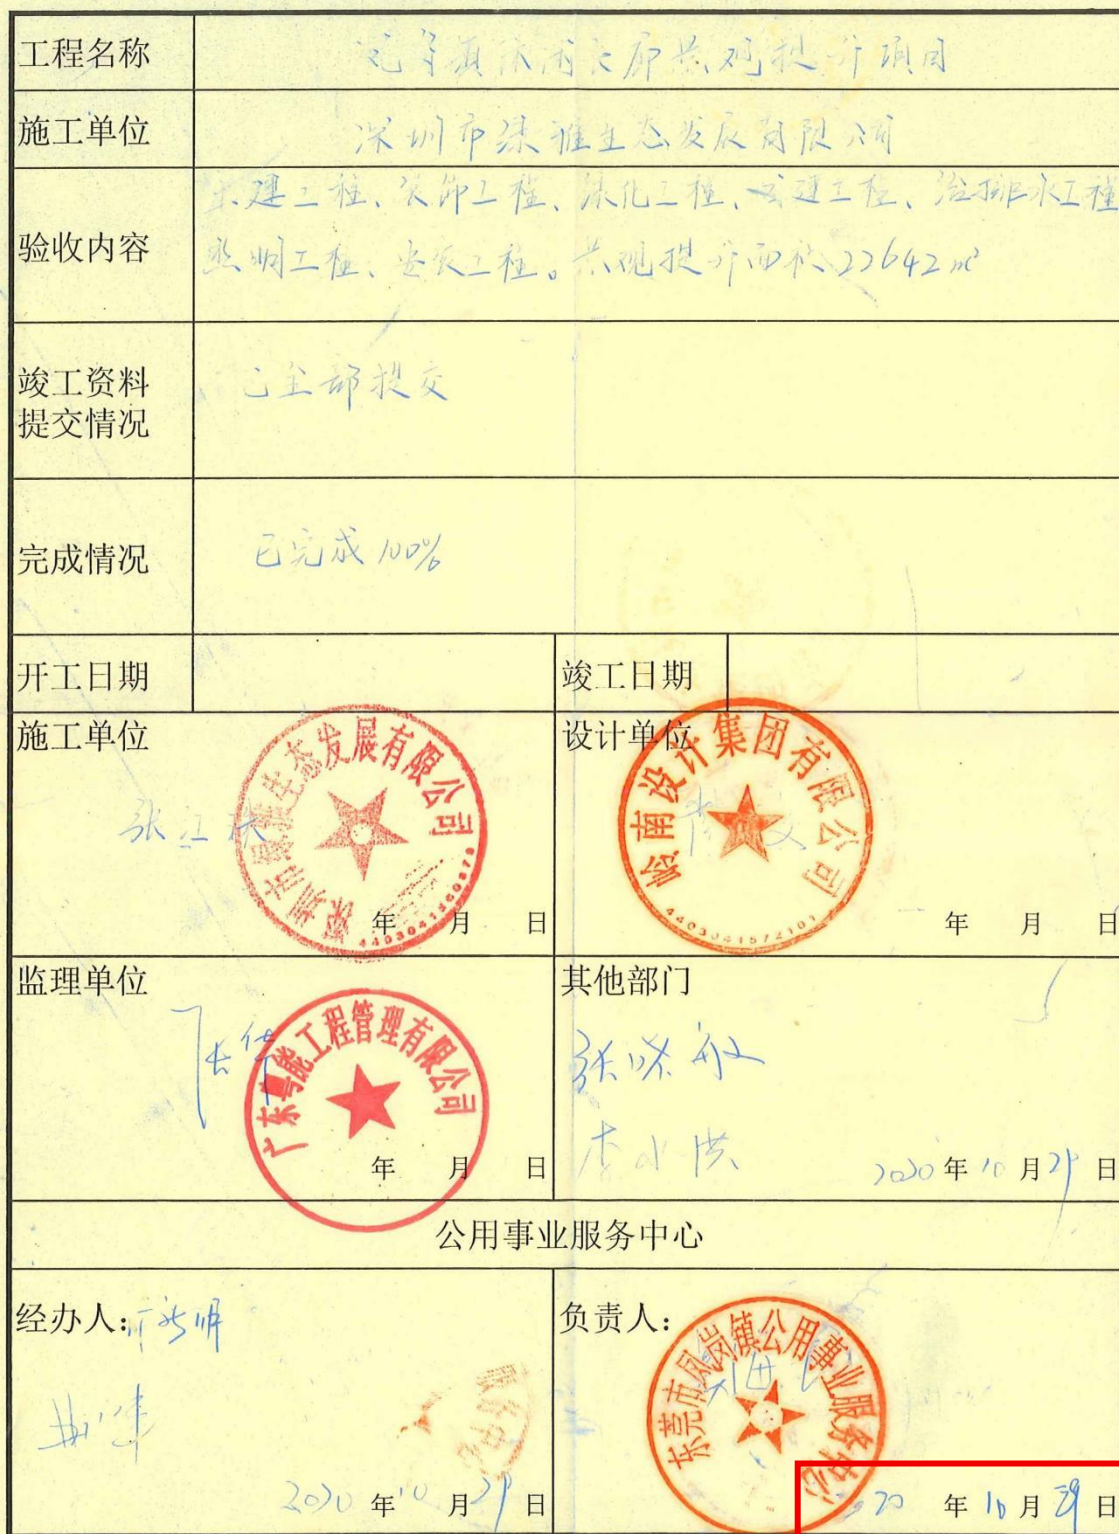 工程名称
景观提升项目
施工单位
深圳市绿雅生态发展有限公司
验收内容
土建工程、装饰工程、绿化工程、土建工程、给排水工程
照明工程、安装工程。景观提升面积22642㎡
竣工资料
提交情况
已全部提交
完成情况
已完成100%
开工日期
竣工日期
施工单位
生态发展有限公司
年 月 日
设计单位
岭南设计集团有限公司
4403041572101
年 月 日
监理单位
广东粤能工程管理有限公司
年 月 日
其他部门
张晓敏
李小洪
2020年10月29日
公用事业服务中心
经办人:
服务中心
2020年10月29日
负责人:
东莞市凤岗镇公用事业服务中心
20年10月29日